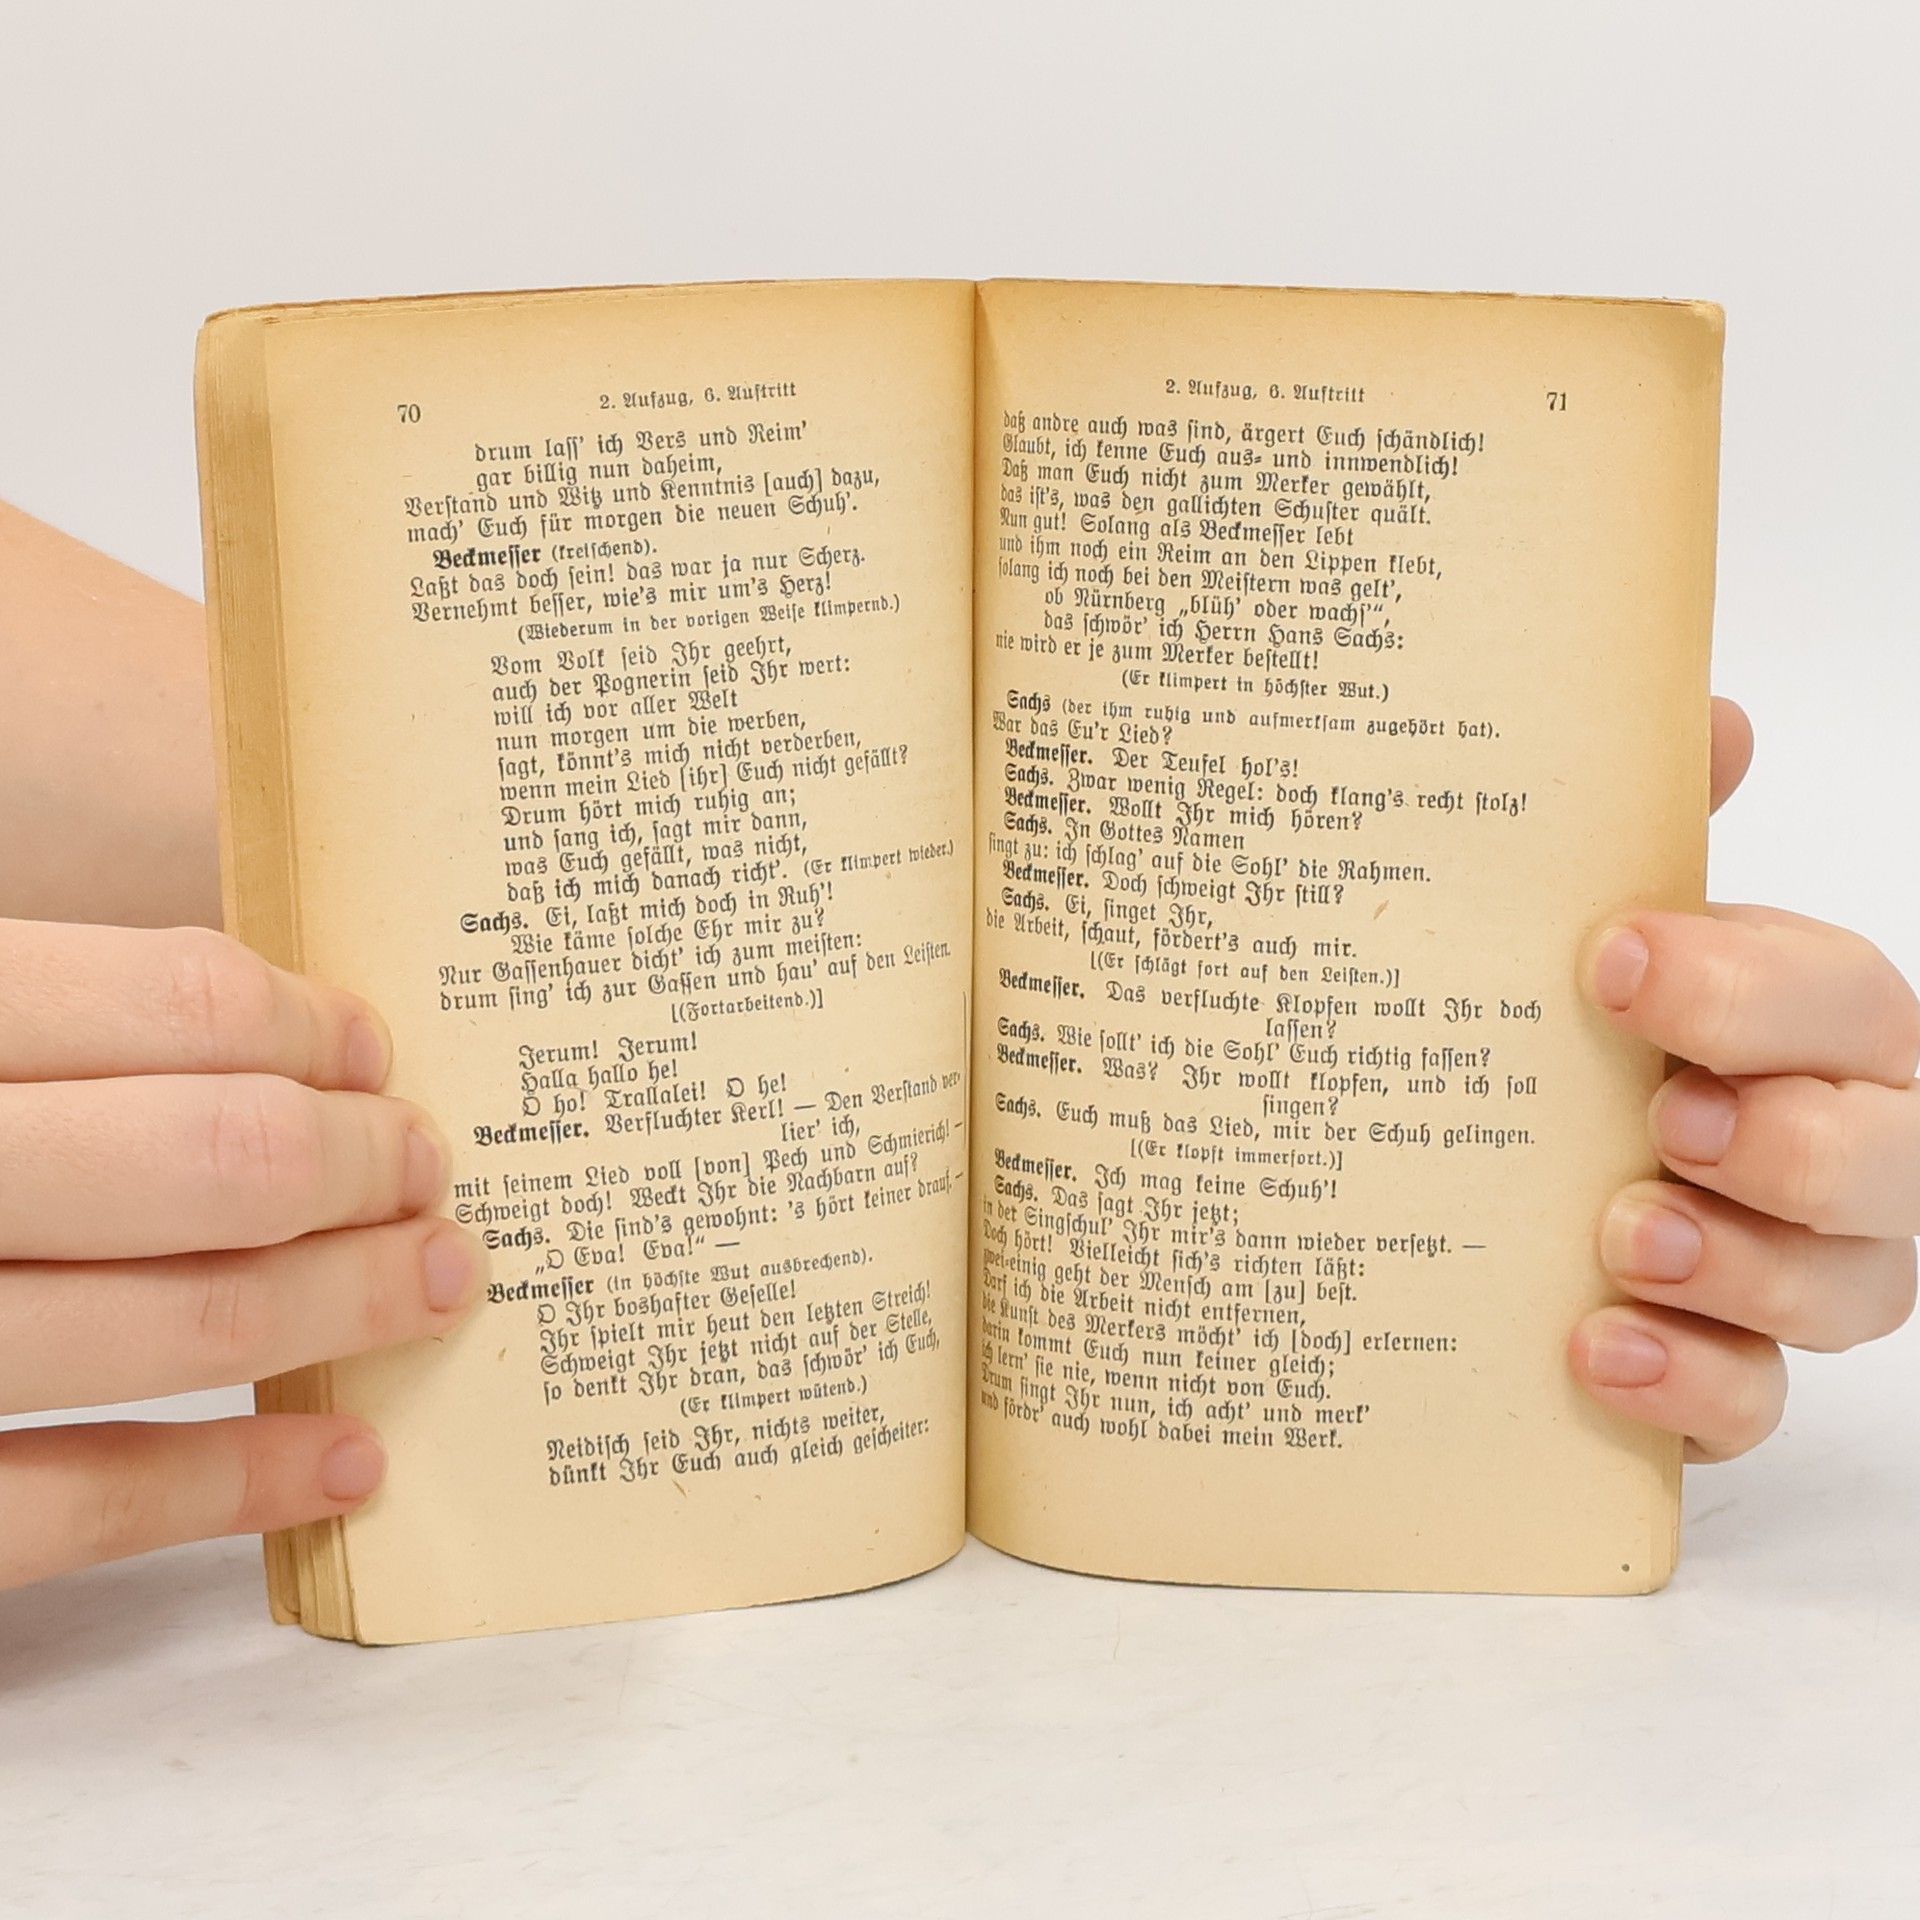 70
2. Aufzug, 6. Auftritt
drum laſſ' ich Vers und Reim'
gar billig nun daheim,
Verſtand und Witz und Kenntnis [auch] dazu,
mach' Euch für morgen die neuen Schuh'.
Beckmeſſer (kreiſchend).
Laßt das doch ſein! das war ja nur Scherz.
Vernehmt beſſer, wie's mir um's Herz!
(Wiederum in der vorigen Weiſe klimpernd.)
Vom Volk ſeid Ihr geehrt,
auch der Pognerin ſeid Ihr wert:
will ich vor aller Welt
nun morgen um die werben,
ſagt, könnt's mich nicht verderben,
wenn mein Lied [ihr] Euch nicht gefällt?
Drum hört mich ruhig an;
und ſang ich, ſagt mir dann,
was Euch gefällt, was nicht,
daß ich mich danach richt'. (Er klimpert wieder.)
Sachs. Ei, laßt mich doch in Ruh'!
Wie käme ſolche Ehr mir zu?
Nur Gaſſenhauer dicht' ich zum meiſten:
drum ſing' ich zur Gaſſen und hau' auf den Leiſten.
[(Fortarbeitend.)]
Jerum! Jerum!
Halla hallo he!
O ho! Trallalei! O he!
Beckmeſſer. Verfluchter Kerl! — Den Verſtand ver-
lier' ich,
mit ſeinem Lied voll [von] Pech und Schmierich! —
Schweigt doch! Weckt Ihr die Nachbarn auf?
Sachs. Die ſind's gewohnt: 's hört keiner drauf. —
„O Eva! Eva!“ —
Beckmeſſer (in höchſte Wut ausbrechend).
O Ihr boshafter Geſelle!
Ihr ſpielt mir heut den letzten Streich!
Schweigt Ihr jetzt nicht auf der Stelle,
ſo denkt Ihr dran, das ſchwör' ich Euch,
(Er klimpert wütend.)
Neidiſch ſeid Ihr, nichts weiter,
dünkt Ihr Euch auch gleich geſcheiter:
2. Aufzug, 6. Auftritt
71
daß andre auch was ſind, ärgert Euch ſchändlich!
Glaubt, ich kenne Euch aus- und innwendlich!
Daß man Euch nicht zum Merker gewählt,
das iſt's, was den gallichten Schuſter quält.
Nun gut! Solang als Beckmeſſer lebt
und ihm noch ein Reim an den Lippen klebt,
ſolang ich noch bei den Meiſtern was gelt',
ob Nürnberg „blüh' oder wachſ'“,
das ſchwör' ich Herrn Hans Sachs:
nie wird er je zum Merker beſtellt!
(Er klimpert in höchſter Wut.)
Sachs (der ihm ruhig und aufmerkſam zugehört hat).
War das Eu'r Lied?
Beckmeſſer. Der Teufel hol's!
Sachs. Zwar wenig Regel: doch klang's recht ſtolz!
Beckmeſſer. Wollt Ihr mich hören?
Sachs. In Gottes Namen
ſingt zu: ich ſchlag' auf die Sohl' die Rahmen.
Beckmeſſer. Doch ſchweigt Ihr ſtill?
Sachs. Ei, ſinget Ihr,
die Arbeit, ſchaut, fördert's auch mir.
[(Er ſchlägt fort auf den Leiſten.)]
Beckmeſſer. Das verfluchte Klopfen wollt Ihr doch
laſſen?
Sachs. Wie ſollt' ich die Sohl' Euch richtig faſſen?
Beckmeſſer. Was? Ihr wollt klopfen, und ich ſoll
ſingen?
Sachs. Euch muß das Lied, mir der Schuh gelingen.
[(Er klopft immerfort.)]
Beckmeſſer. Ich mag keine Schuh'!
Sachs. Das ſagt Ihr jetzt;
in der Singſchul' Ihr mir's dann wieder verſetzt. —
Doch hört! Vielleicht ſich's richten läßt:
zwei-einig geht der Menſch am [zu] beſt.
Darf ich die Arbeit nicht entfernen,
die Kunſt des Merkers möcht' ich [doch] erlernen:
darin kommt Euch nun keiner gleich;
ich lern' ſie nie, wenn nicht von Euch.
Drum ſingt Ihr nun, ich acht' und merk'
und fördr' auch wohl dabei mein Werk.